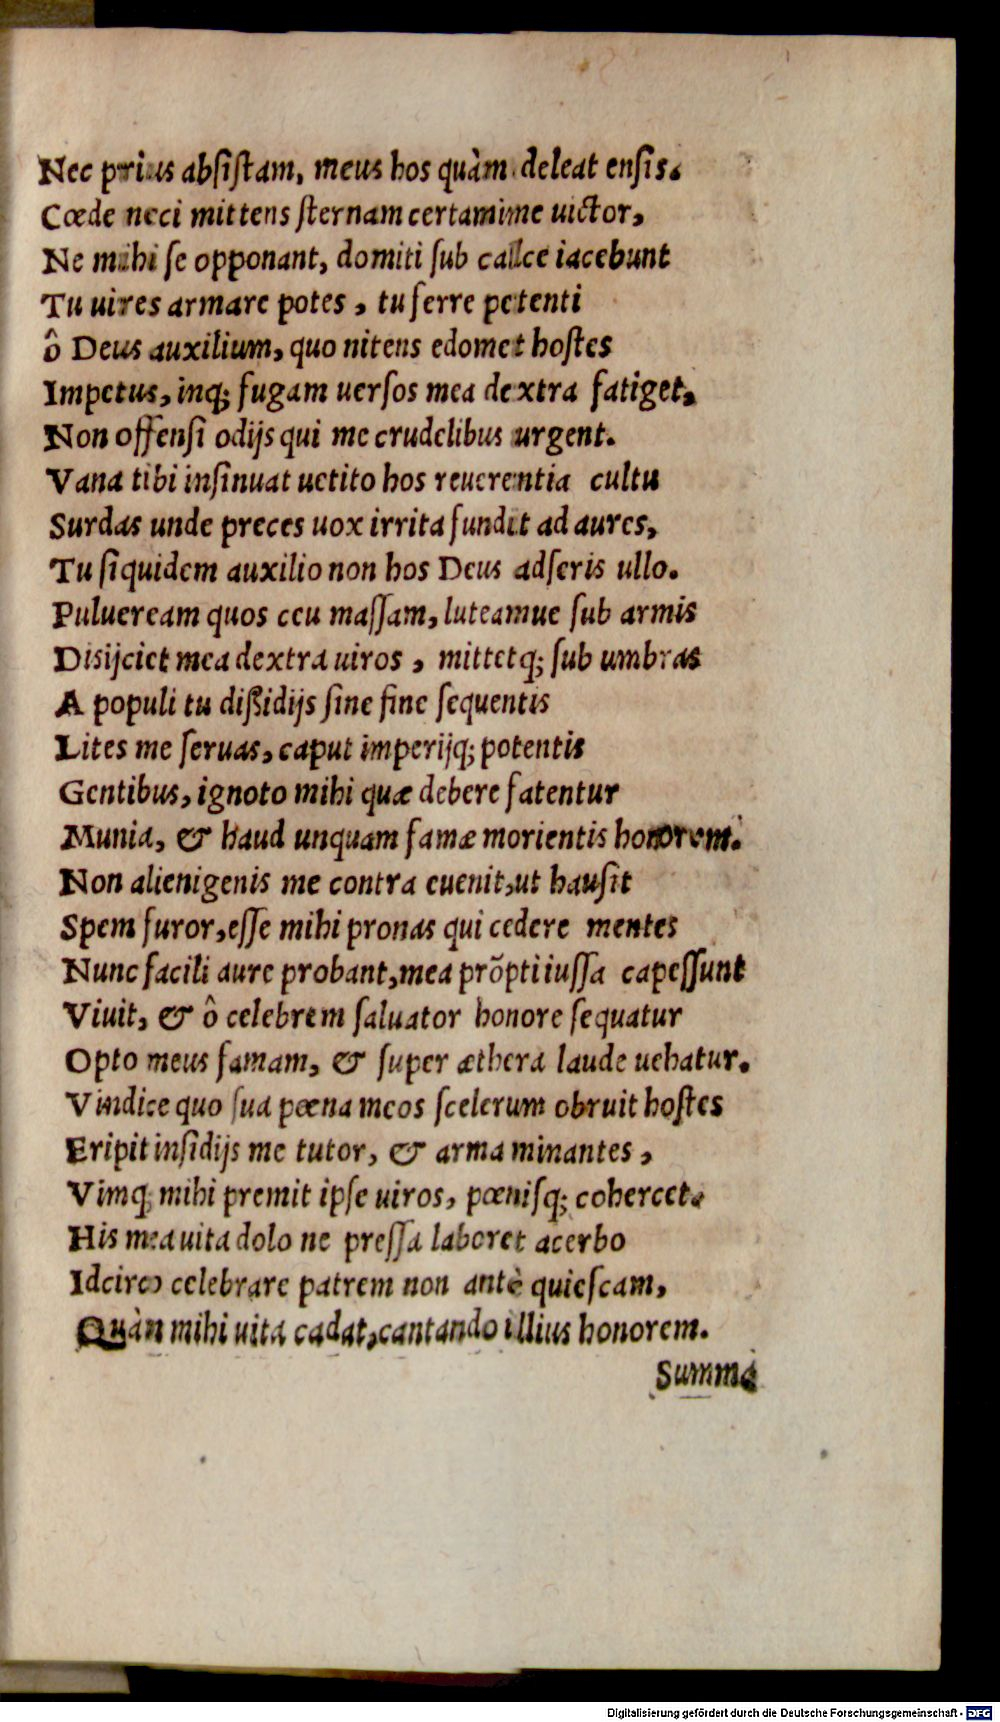 Nec prius absiſtam, meus hos quàm deleat enſis.
Cœde neci mittens ſternam certamine uictor,
Ne mihi ſe opponant, domiti ſub calce iacebunt
Tu uires armare potes, tu ferre petenti
ô Deus auxilium, quo nitens edomet hoſtes
Impetus, inq; fugam uerſos mea dextra fatiget,
Non offenſi odijs qui me crudelibus urgent.
Vana tibi inſinuat uetito hos reuerentia cultu
Surdas unde preces uox irrita fundit ad aures,
Tu ſiquidem auxilio non hos Deus adſeris ullo.
Pulueream quos ceu maſſam, luteamue ſub armis
Disijciet mea dextra uiros, mittetq; ſub umbras
A populi tu dißidijs ſine fine ſequentis
Lites me ſeruas, caput imperijq; potentis
Gentibus, ignoto mihi quæ debere fatentur
Munia, & haud unquam famæ morientis honorem.
Non alienigenis me contra euenit, ut hauſit
Spem furor, eſſe mihi pronas qui cedere mentes
Nunc facili aure probant, mea prõpti iuſſa capeſſunt
Viuit, & ô celebrem ſaluator honore ſequatur
Opto meus famam, & ſuper æthera laude uehatur.
Vindice quo ſua pœna meos ſcelerum obruit hoſtes
Eripit inſidijs me tutor, & arma minantes,
Vimq; mihi premit ipſe uiros, pœniſq; cohercet.
His mea uita dolo ne preſſa laboret acerbo
Idcirco celebrare patrem non antè quieſcam,
Quàn mihi uita cadat, cantando illius honorem.
Summa
Digitalisierung gefördert durch die Deutsche Forschungsgemeinschaft - DFG